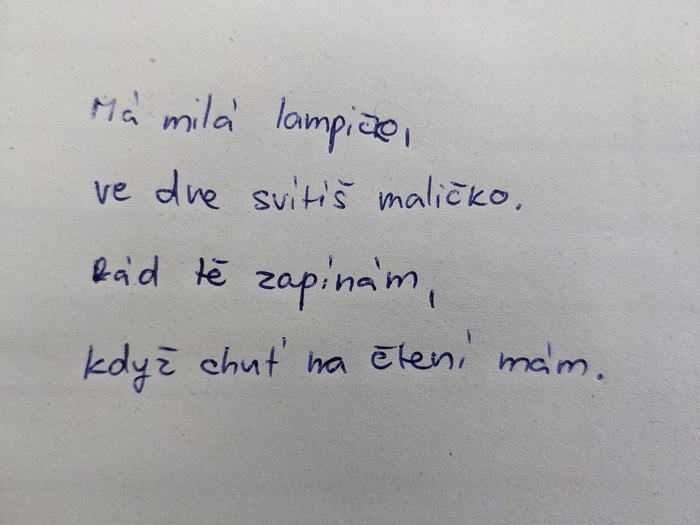 Má milá lampičko,
ve dne svítíš maličko.
Rád tě zapínám,
když chuť na čtení mám.